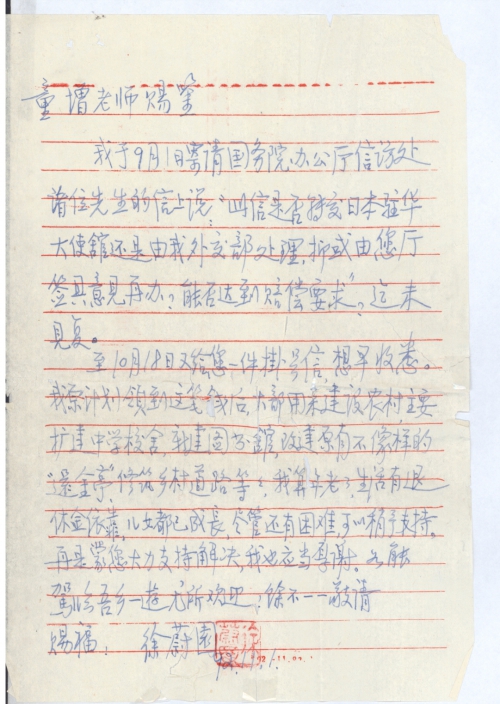 童增老师赐鉴
我于9月1日寄请国务院办公厅信访处
首位先生的信上说:"此信是否转交日本驻华
大使馆还是由我外交部处理,抑或由您厅
签具意见再办?能否达到赔偿要求",迄未
见复。
至10月18日又给您一件挂号信,想早收悉。
我原计划领到这笔钱后,大部用来建设农村,主要
扩建中学校舍,新建图书馆,改建原有不像样的
"还金亭"修筑乡村道路等;我算年老了,生活有退
休金依靠,儿女都已成长,尽管还有困难,可以稍予支持。
再是蒙您大力支持解决,我也应当厚谢。如能
驾临吾乡一游,无所欢迎;馀不一一敬请
赐福,徐蔚园